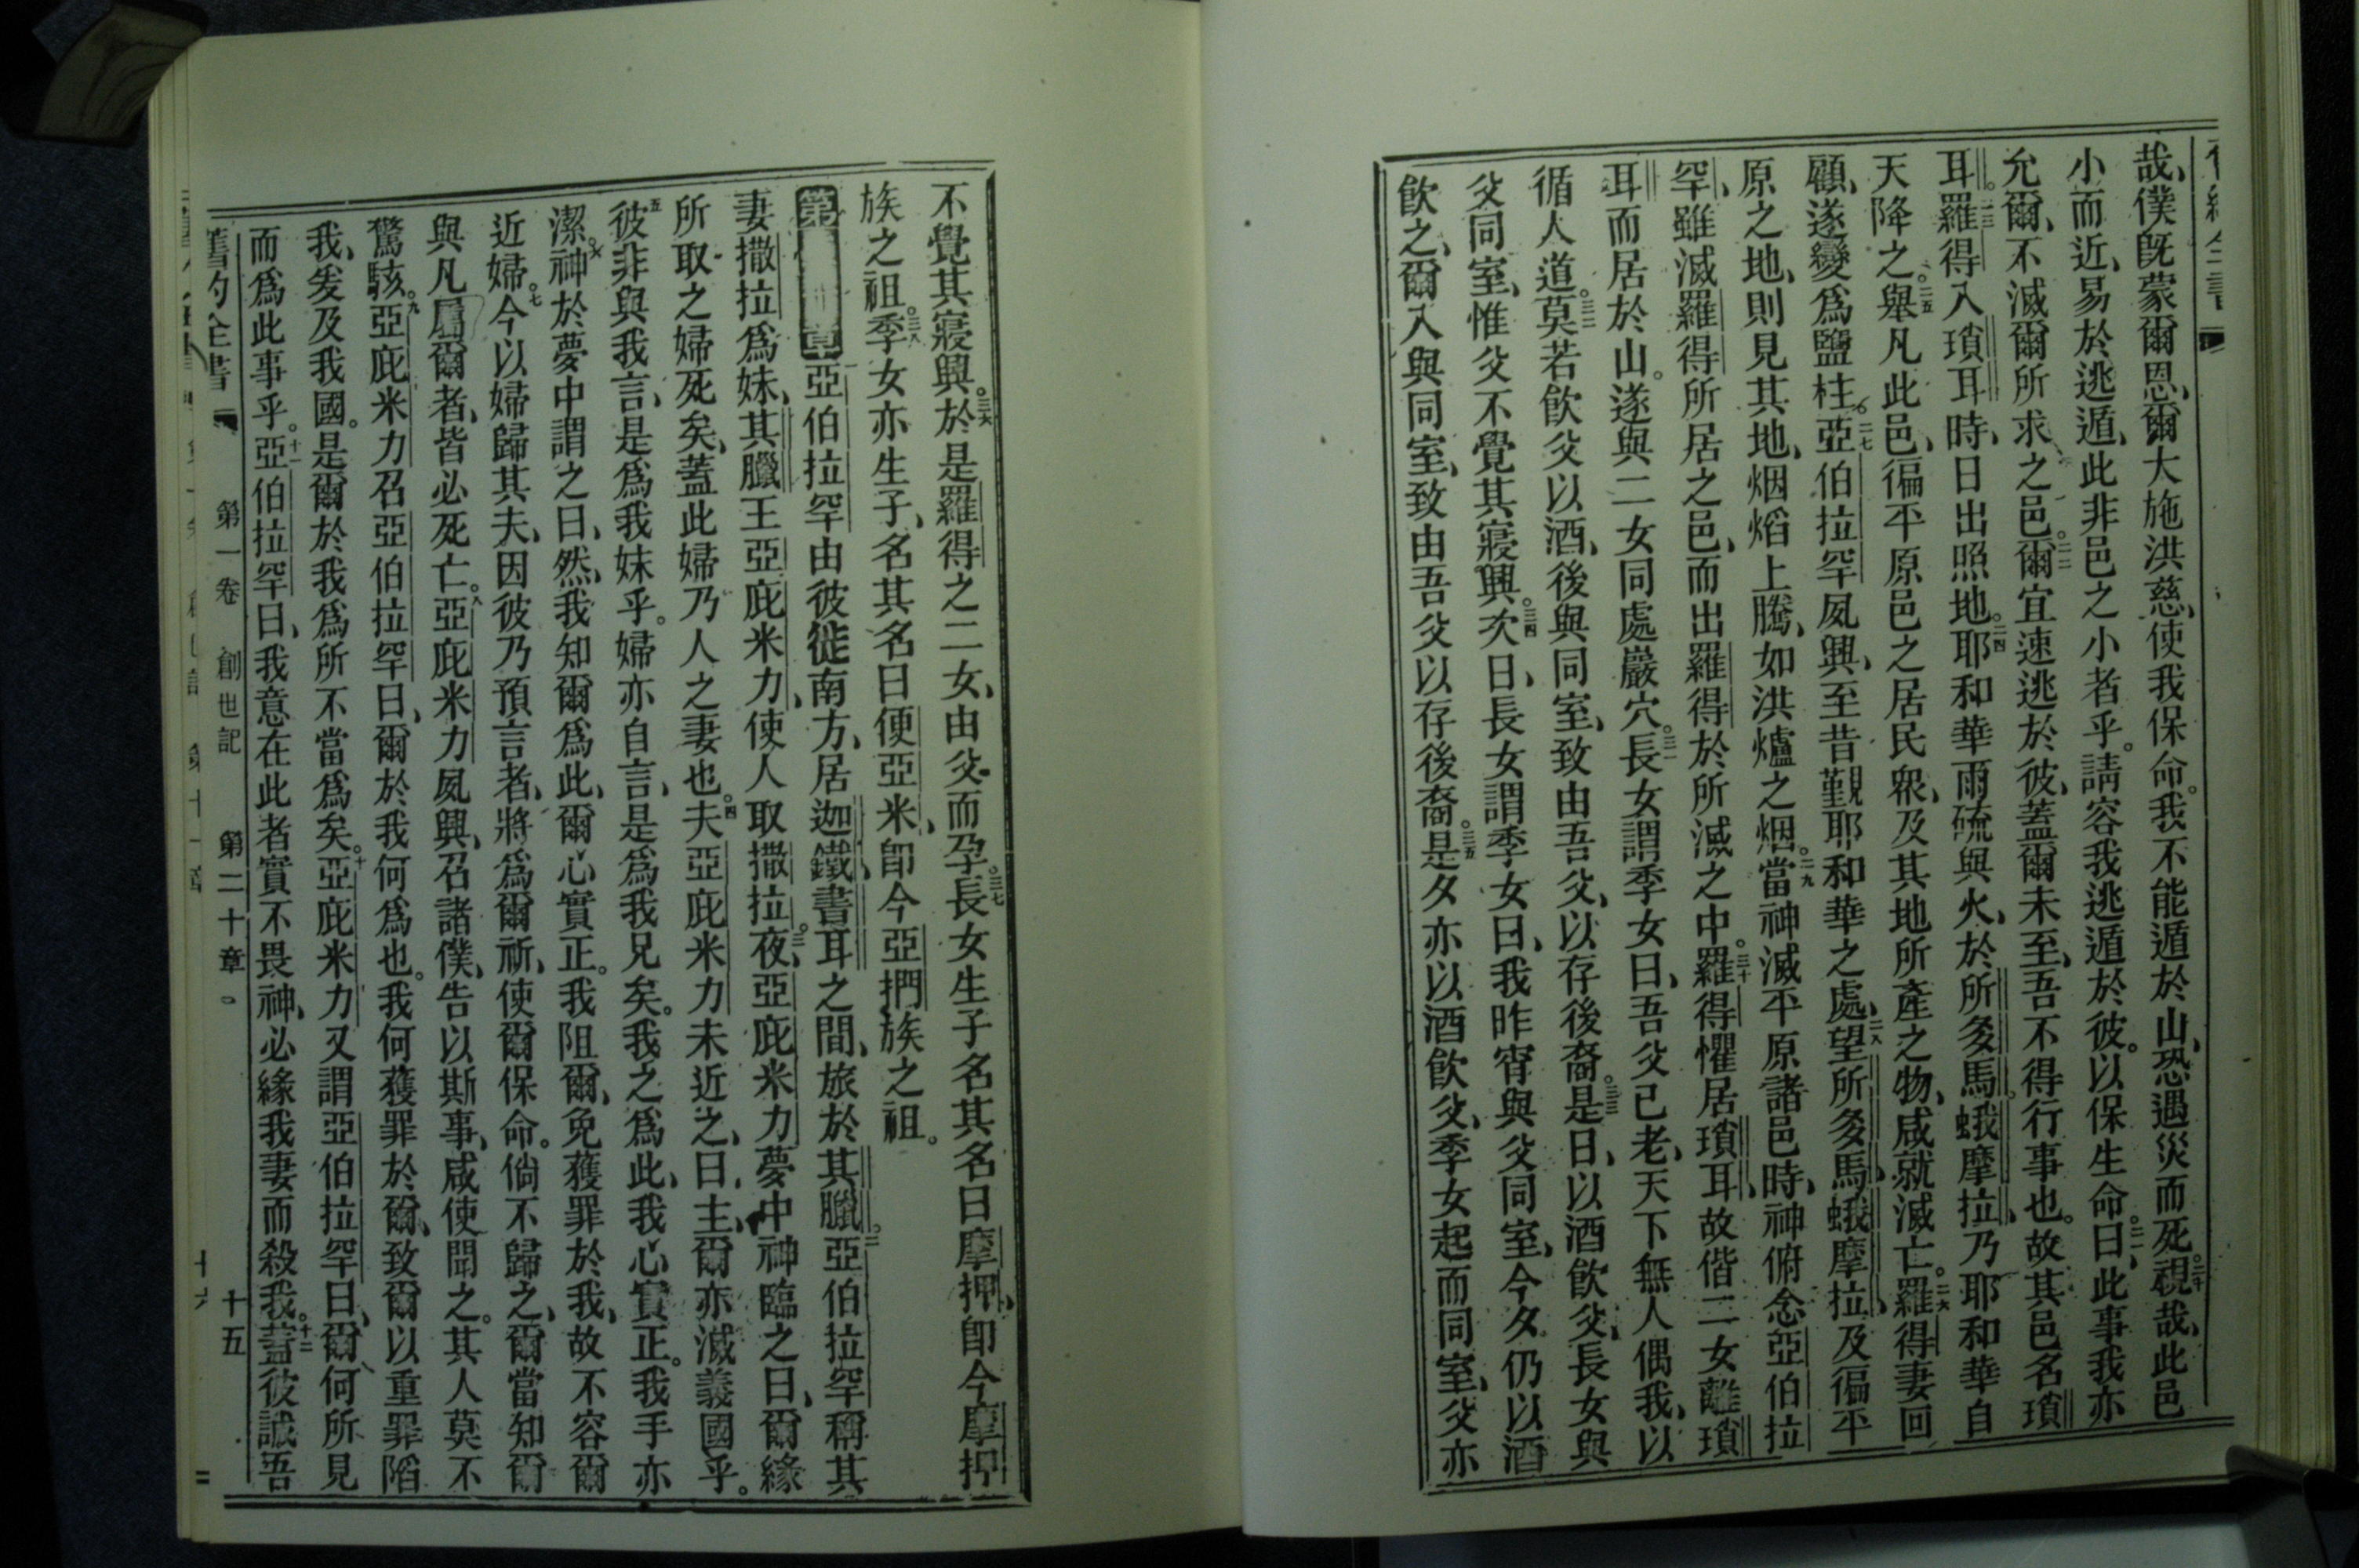 哉、僕既蒙爾恩、爾大施洪慈、使我保命。我不能遁於山、恐遇災而死。二十視哉、此邑
小而近、易於逃遁、此非邑之小者乎。請容我逃遁於彼。以保生命。二一曰、此事我亦
允爾、不滅爾所求之邑。二二爾宜速逃於彼、蓋爾未至、吾不得行事也。故其邑名瑣
耳。二三羅得入瑣耳時、日出照地。二四耶和華雨硫與火、於所多馬蛾摩拉、乃耶和華自
天降之。二五舉凡此邑、徧平原邑之居民衆、及其地所產之物、咸就滅亡。二六羅得妻回
顧、遂變爲鹽柱。二七亞伯拉罕夙興、至昔覲耶和華之處、二八望所多馬、蛾摩拉、及徧平
原之地、則見其地、烟熖上騰、如洪爐之烟。二九當神滅平原諸邑時、神俯念亞伯拉
罕、雖滅羅得所居之邑、而出羅得於所滅之中。三十羅得懼居瑣耳、故偕二女離瑣
耳而居於山。遂與二女同處巖穴。三一長女謂季女曰、吾父已老、天下無人偶我、以
循人道。三二莫若飲父以酒、後與同室、致由吾父、以存後裔。三三是日、以酒飲父、長女與
父同室、惟父不覺其寢興。三四次日、長女謂季女曰、我昨宵與父同室、今夕仍以酒
飲之、爾入與同室、致由吾父以存後裔。三五是夕亦以酒飲父、季女起而同室、父亦
不覺其寢興。三六於是羅得之二女、由父而孕。三七長女生子名其名曰摩押、卽今摩押
族之祖。三八季女亦生子、名其名曰便亞米、卽今亞捫族之祖。
第二十章亞伯拉罕由彼徙南方、居迦鐵、書耳之間、旅於其臘。二亞伯拉罕稱其
妻撒拉爲妹、其臘王亞庇米力、使人取撒拉。三夜、亞庇米力夢中神臨之曰、爾緣
所取之婦死矣、蓋此婦乃人之妻也。四夫亞庇米力未近之、曰、主、爾亦滅義國乎。
五彼非與我言、是爲我妹乎。婦亦自言、是爲我兄矣。我之爲此、我心實正。我手亦
潔。六神於夢中謂之曰、然、我知爾爲此、爾心實正。我阻爾、免獲罪於我、故不容爾
近婦。七今以婦歸其夫、因彼乃預言者、將爲爾祈、使爾保命。倘不歸之、爾當知爾
與凡屬爾者、皆必死亡。八亞庇米力夙興、召諸僕、告以斯事、咸使聞之。其人莫不
驚駭。九亞庇米力召亞伯拉罕曰、爾於我何爲也。我何獲罪於爾、致爾以重罪陷
我、爰及我國。是爾於我爲所不當爲矣。十亞庇米力又謂亞伯拉罕曰、爾何所見
而爲此事乎。十一亞伯拉罕曰、我意在此者實不畏神、必緣我妻而殺我。十二蓋彼誠吾
舊約全書 第一卷 創世記 第二十章 十五